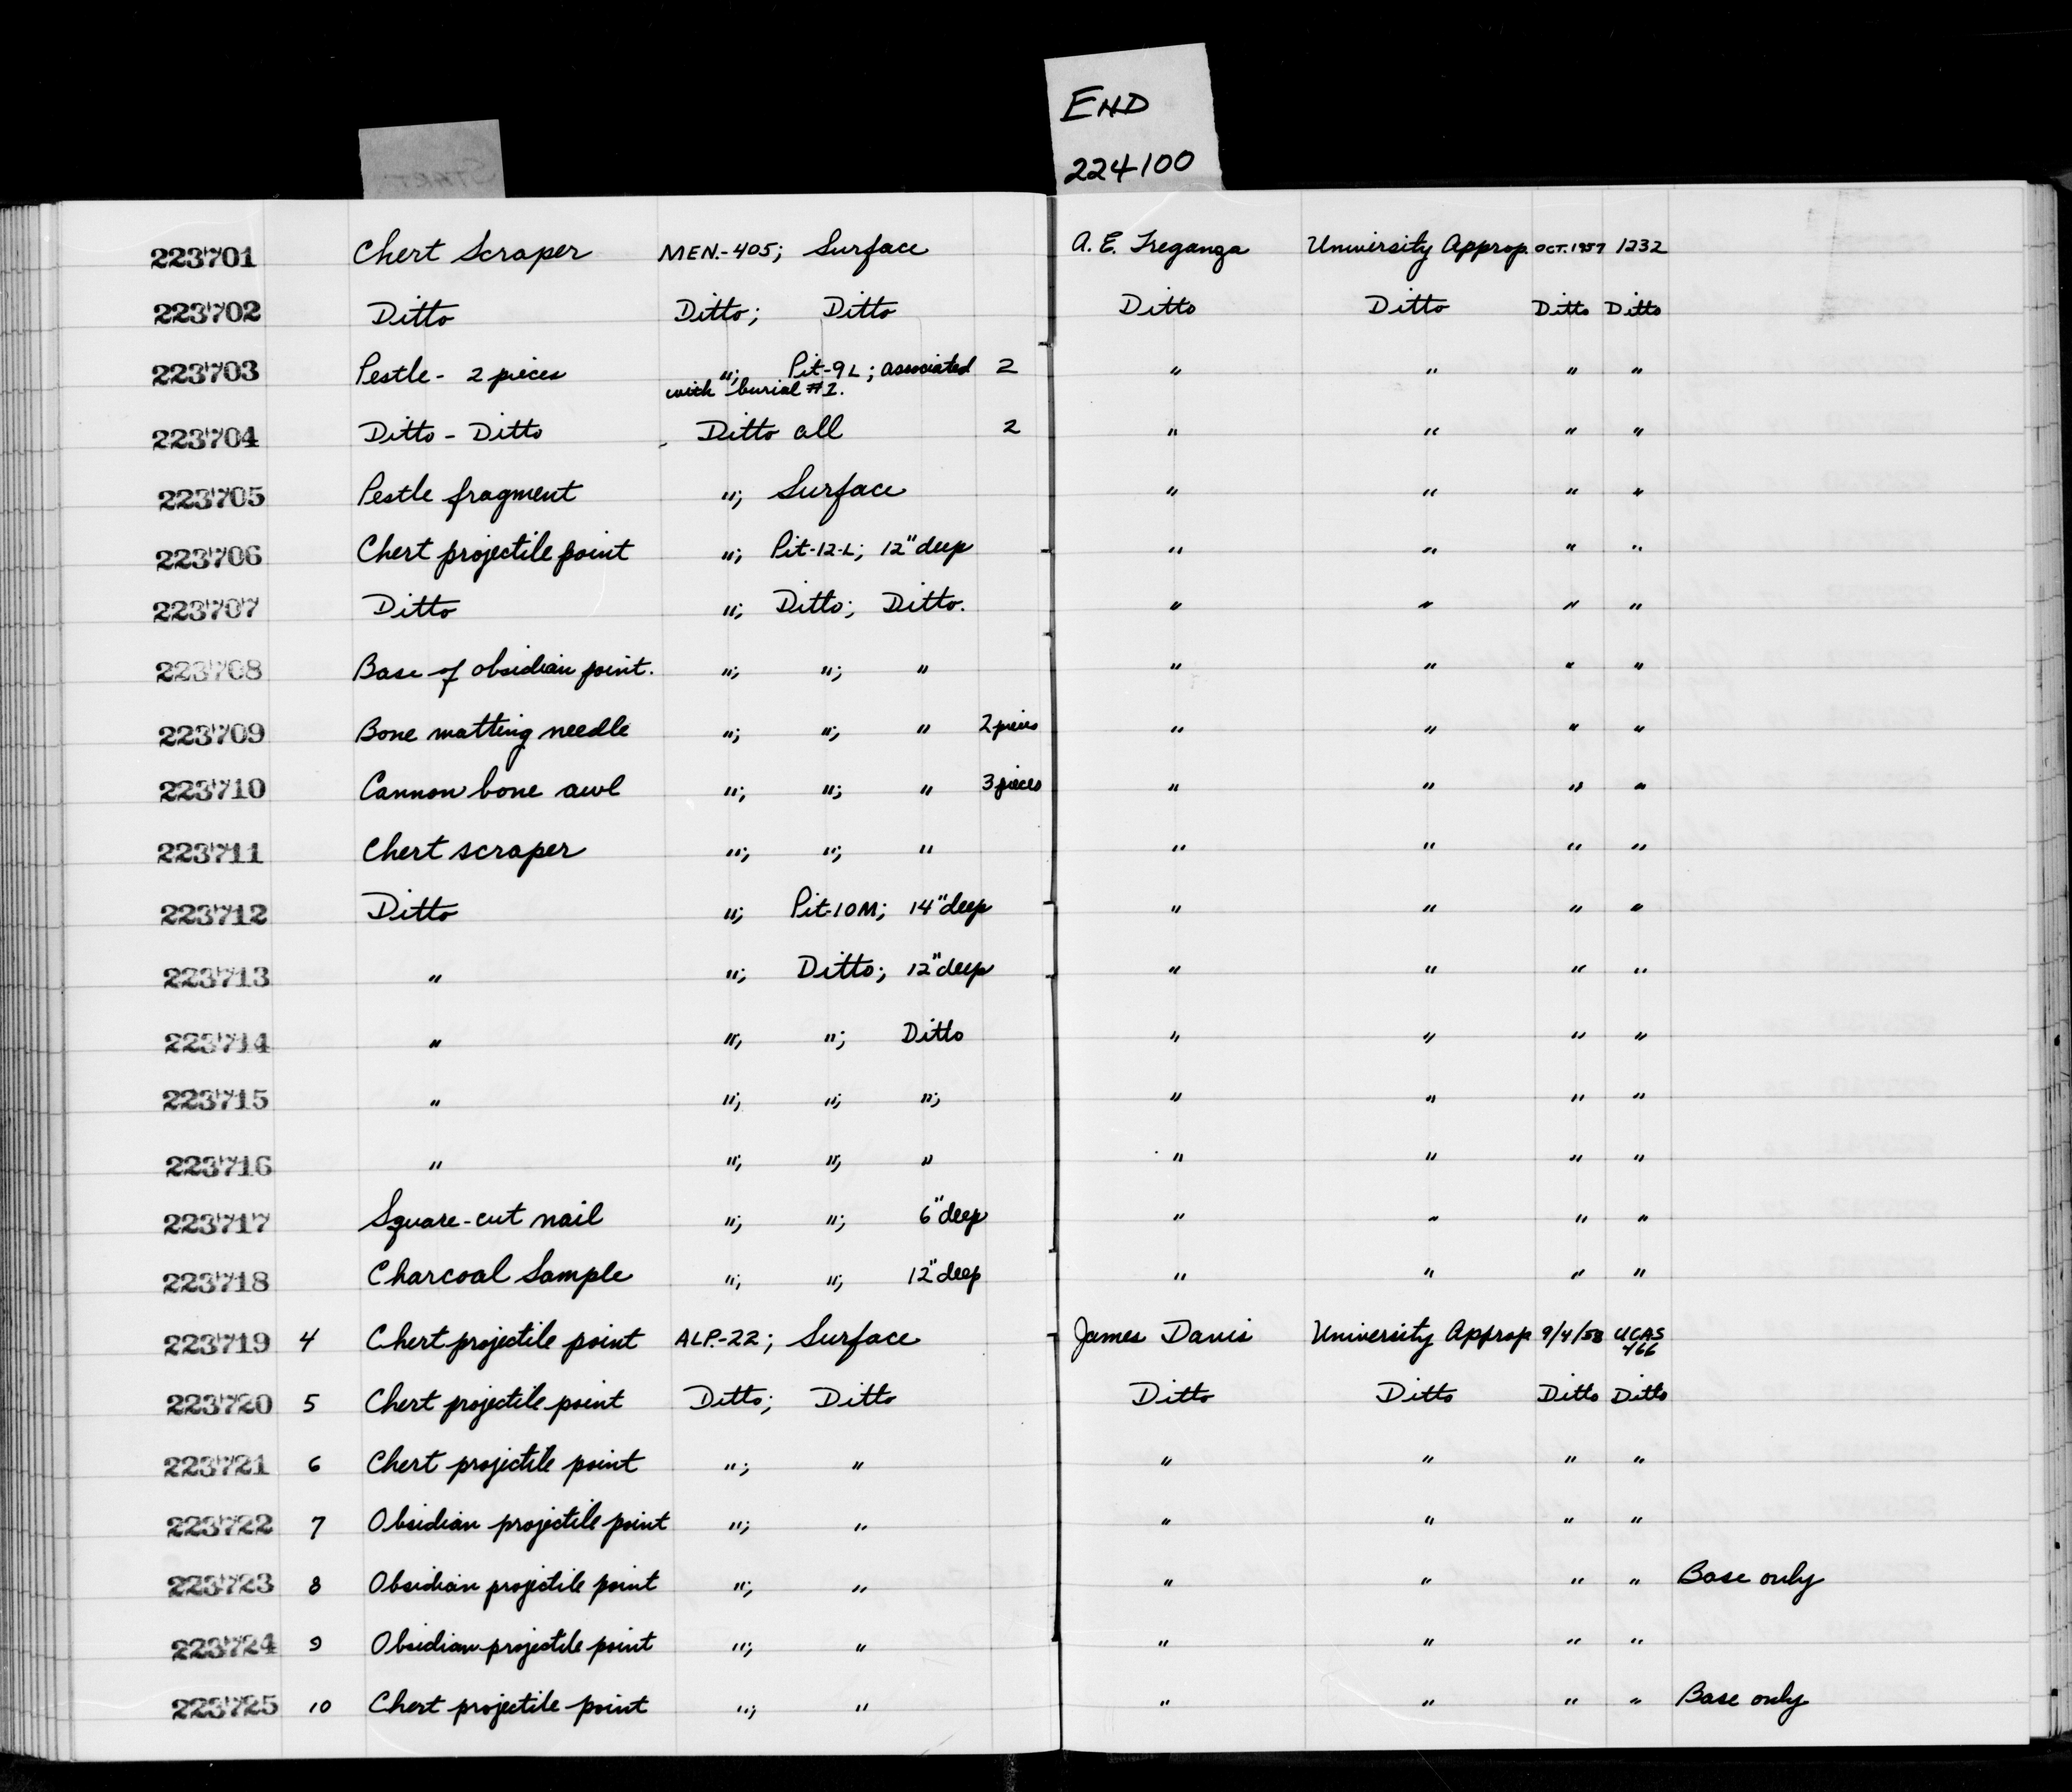 END
224100
START
223701 Chert Scraper MEN.-405; Surface A. E. Treganza University Approp. OCT. 1957 1232
223702 Ditto Ditto; Ditto Ditto Ditto Ditto Ditto
223703 Pestle - 2 pieces "; Pit-9L; associated 2 " " " "
with burial #1.
223704 Ditto - Ditto Ditto all 2 " " " "
223705 Pestle fragment "; Surface " " " "
223706 Chert projectile point "; Pit-12-L; 12" deep " " " "
223707 Ditto "; Ditto; Ditto. " " " "
223708 Base of obsidian point. "; "; " " " " "
223709 Bone matting needle "; "; " 2 pieces " " " "
223710 Cannon bone awl "; "; " 3 pieces " " " "
223711 Chert scraper "; "; " " " " "
223712 Ditto "; Pit-10M; 14" deep " " " "
223713 " "; Ditto; 12" deep " " " "
223714 " "; "; Ditto " " " "
223715 " "; "; "; " " " "
223716 " "; "; " " " " "
223717 Square-cut nail "; "; 6" deep " " " "
223718 Charcoal Sample "; "; 12" deep " " " "
223719 4 Chert projectile point ALP.-22; Surface James Davis University Approp 9/4/58 UCAS
466
223720 5 Chert projectile point Ditto; Ditto Ditto Ditto Ditto Ditto
223721 6 Chert projectile point "; " " " " "
223722 7 Obsidian projectile point "; " " " " "
223723 8 Obsidian projectile point "; " " " " " Base only
223724 9 Obsidian projectile point "; " " " " "
223725 10 Chert projectile point "; " " " " " Base only